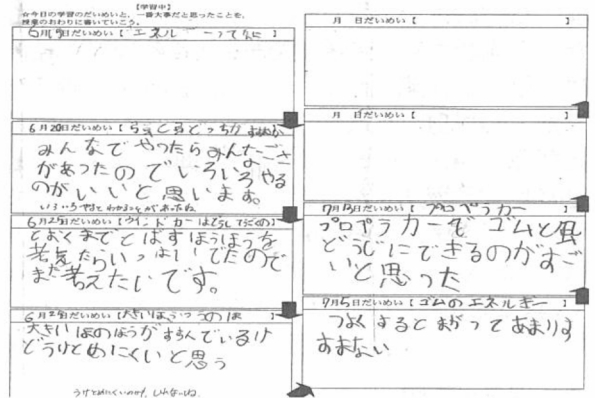 【学習中】
☆今日の学習のだいめいと、一番大事だと思ったことを、
授業のおわりに書いていこう。
6月19日だいめい【エネルギーってなに
6月20日だいめい【
みんなでやったらみんなたごさ
があったのでいろいろやる
のがいいと思います。
6月25日だいめい【ウインドカーはどうしてうごくの
とおくまでとばすほうほうを
考えたらいっぱいでたので
また考えたいです。
6月25日だいめい【大きいほ
大きいほのほうがすすんでいるけ
どうけとめにくいと思う
月 日だいめい【 】
月 日だいめい【 】
7月3日だいめい【プロペラカー 】
プロペラカーぞゴムと風
どうじにできるのがすご
いと思った
7月5日だいめい【ゴムのエネルギー 】
つよくするとまがってあまりす
すまない